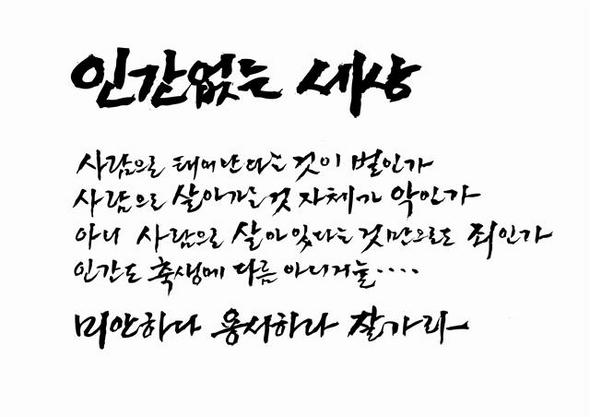 인간없는 세상
사람으로 태어난다는 것이 벌인가
사람으로 살아가는 것 자체가 악인가
아니 사람으로 살아 있다는 것만으로도 죄인가
인간도 축생에 다름 아니거늘....
미안하다 용서하라 잘가라